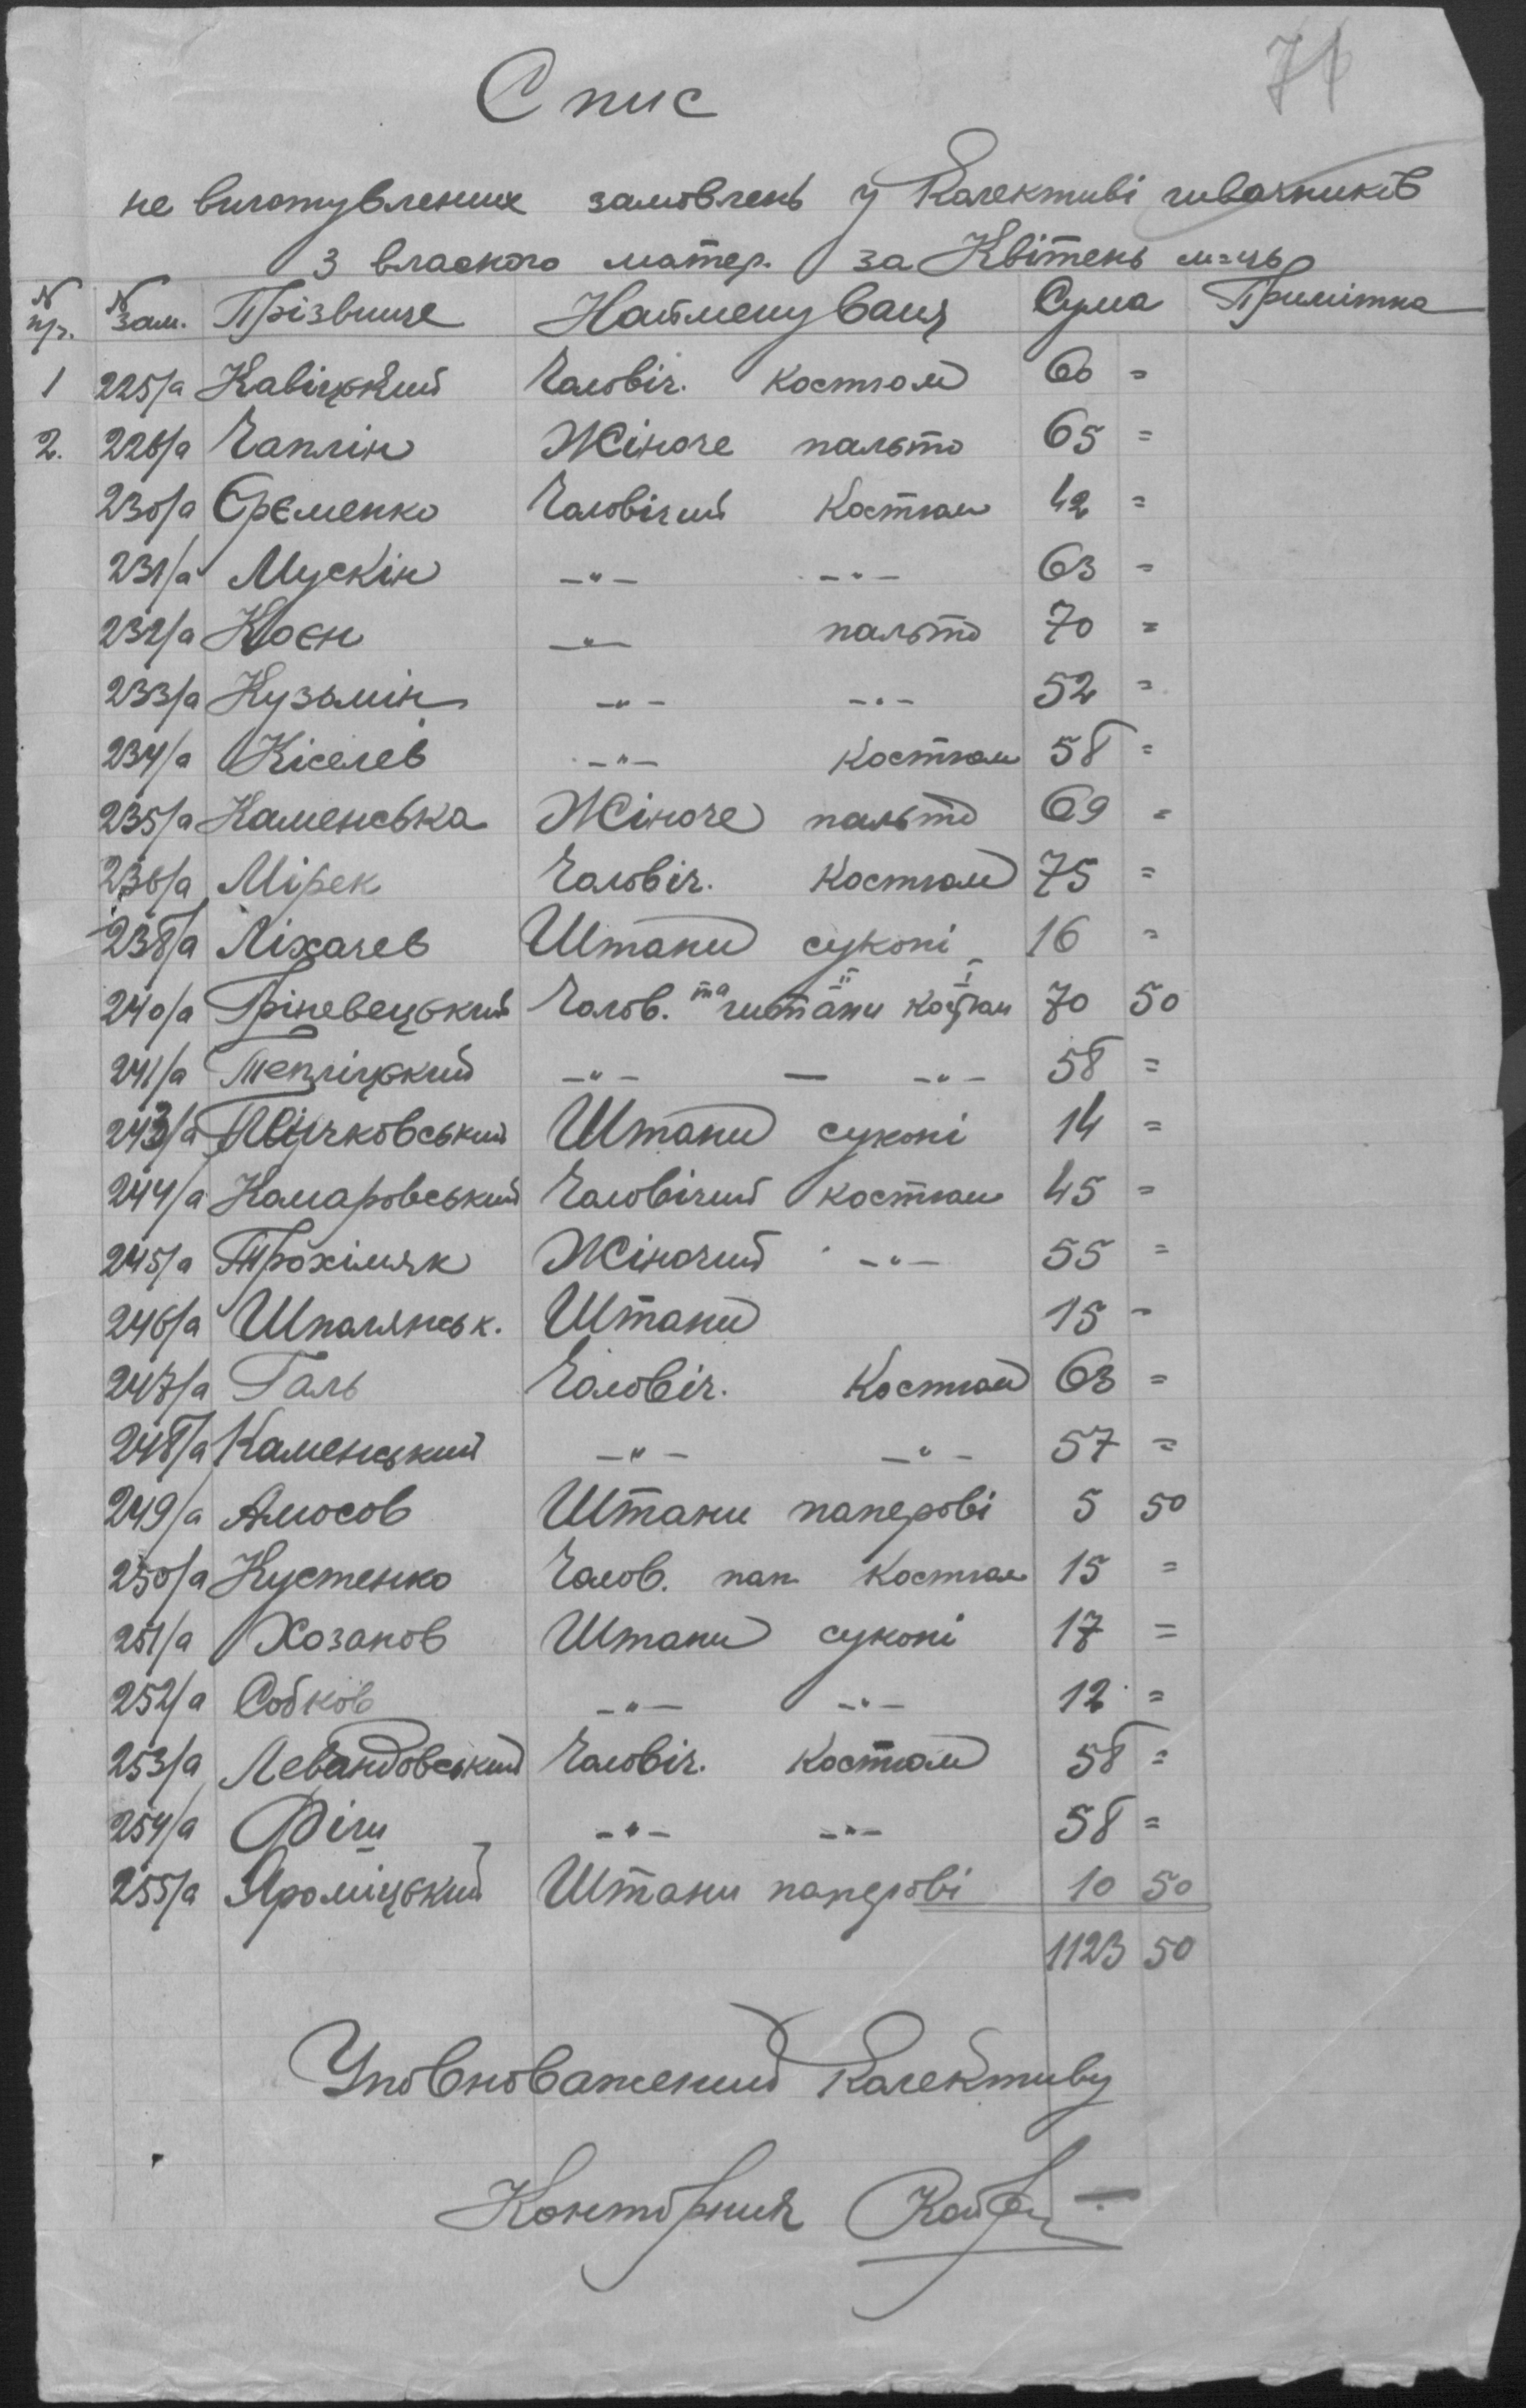 71
Спис
не виготувлених замовлень у Колективі швачників
з власного матер. за Квітень м-ць
N пр. N зам. Прізвище Найменуваня Сума Примітка
1 225/а Кавіцький Чоловіч. костюм 60 =
2. 226/а Чаплін Жіноче пальто 65 =
230/а Єрєменко Чоловічий Костюм 42 =
231/а Мускін -"- -"- 63 =
232/а Коєн -"- пальто 70 =
233/а Кузьмін -"- -"- 52 =
234/а Кіселев -"- Костюм 58 =
235/а Каменська Жіноче пальто 69 =
236/а Мірек Чоловіч. Костюм 75 =
238/а Ліхачев Штани суконі 16 =
240/а Гріневецький Чолов. та штани костюм 70 50
241/а Тепліцький -"- — -"- 58 =
243/а Штани суконі 14 =
244/а Комаровський Чоловічий костюм 45 =
245/а Трохімяк Жіночий -"- 55 =
246/а Шполянськ. Штани 15 =
247/а Галь Чоловіч. Костюм 63 =
248/а Каменецький -"- -"- 57 =
249/а Амосов Штани паперові 5 50
250/а Кустенко Чолов. пап. Костюм 15 =
251/а Хозанов Штани суконі 17 =
252/а Собков -"- -"- 12 =
253/а Левандовський Чоловіч. Костюм 58 =
254/а Фіш -"- -"- 58 =
255/а Яроміцький Штани паперові 10 50
1123 50
Уповноважений Колективу
Конторник